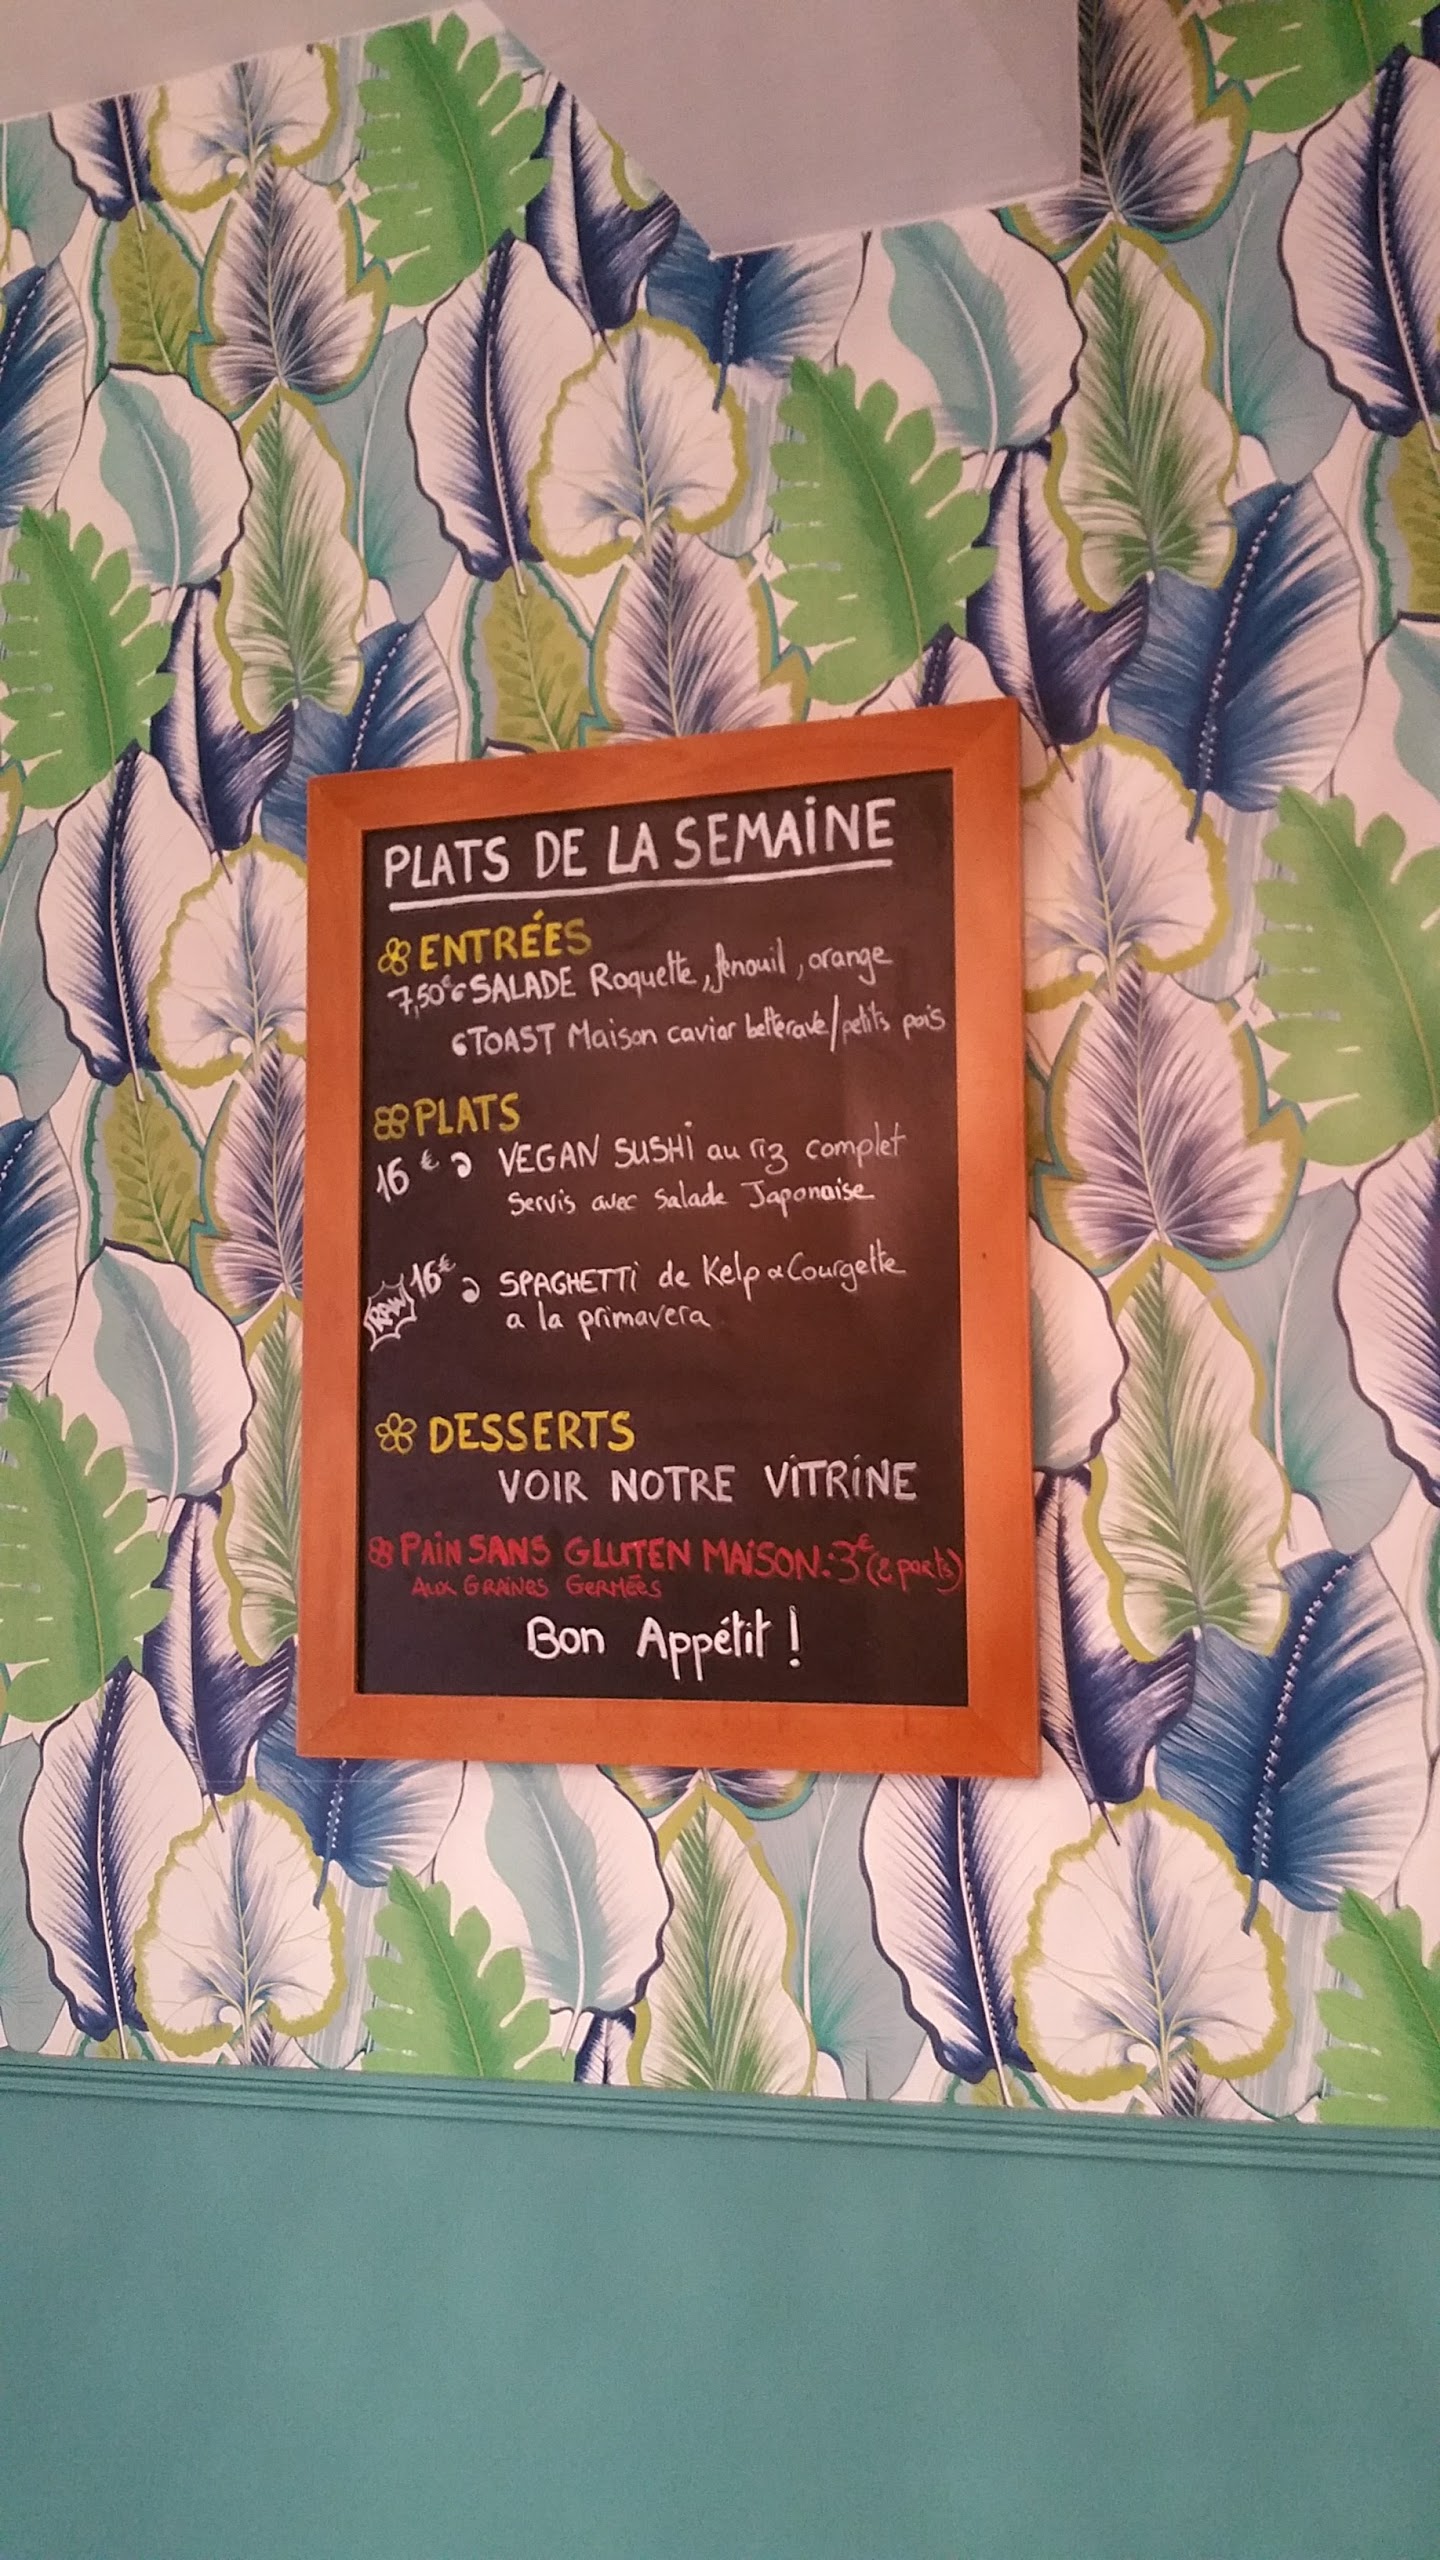 PLATS DE LA SEMAINE
ENTRÉES
7,50€ SALADE Roquette, fenouil, orange
TOAST Maison caviar betterave/petits pois
PLATS
16€ VEGAN SUSHI au riz complet
Servis avec Salade Japonaise
RAW 16€ SPAGHETTI de Kelp & Courgette
a la primavera
DESSERTS
VOIR NOTRE VITRINE
PAIN SANS GLUTEN MAISON: 3€ (2 parts)
AUX GRAINES GERMÉES
Bon Appétit !